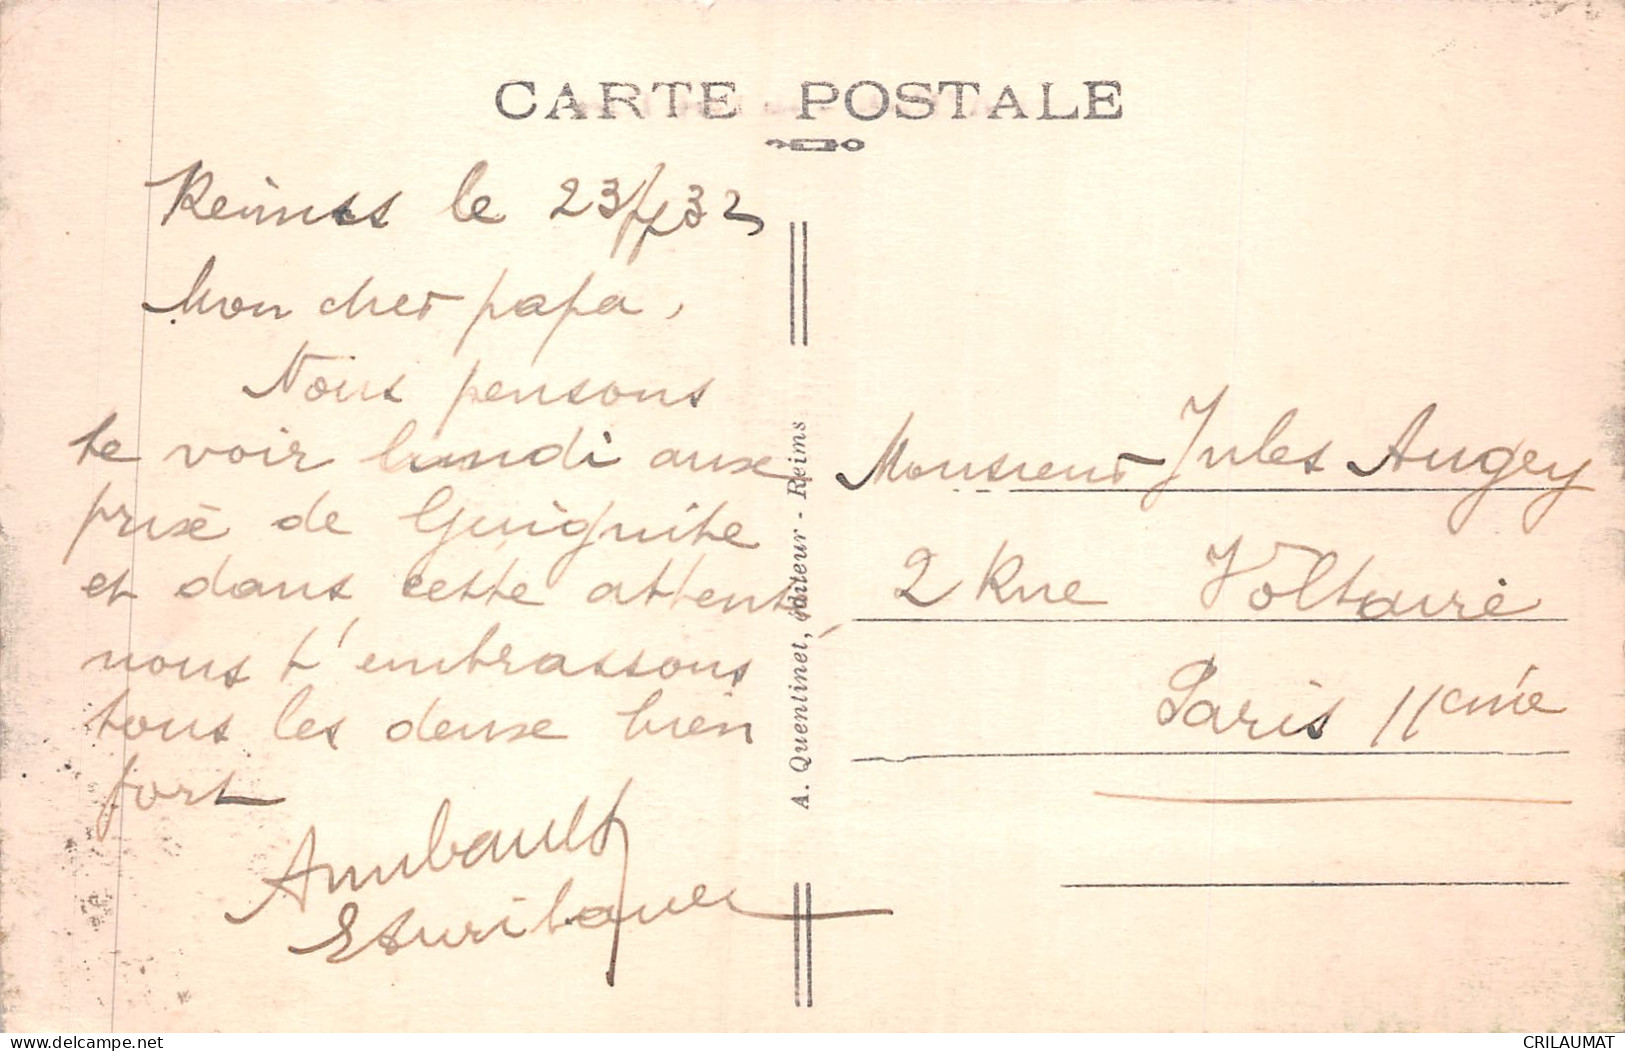 CARTE POSTALE
Reims le 23/7/32
Mon cher papa,
Nous pensons
te voir lundi aux
prix de Guignite
et dans cette attente
nous t'embrassons
tous les deux bien
fort
A. Quentinet, éditeur - Reims
Monsieur Jules Augey
2 Rue Voltaire
Paris 11ème
delcampe.net
CRILAUMAT